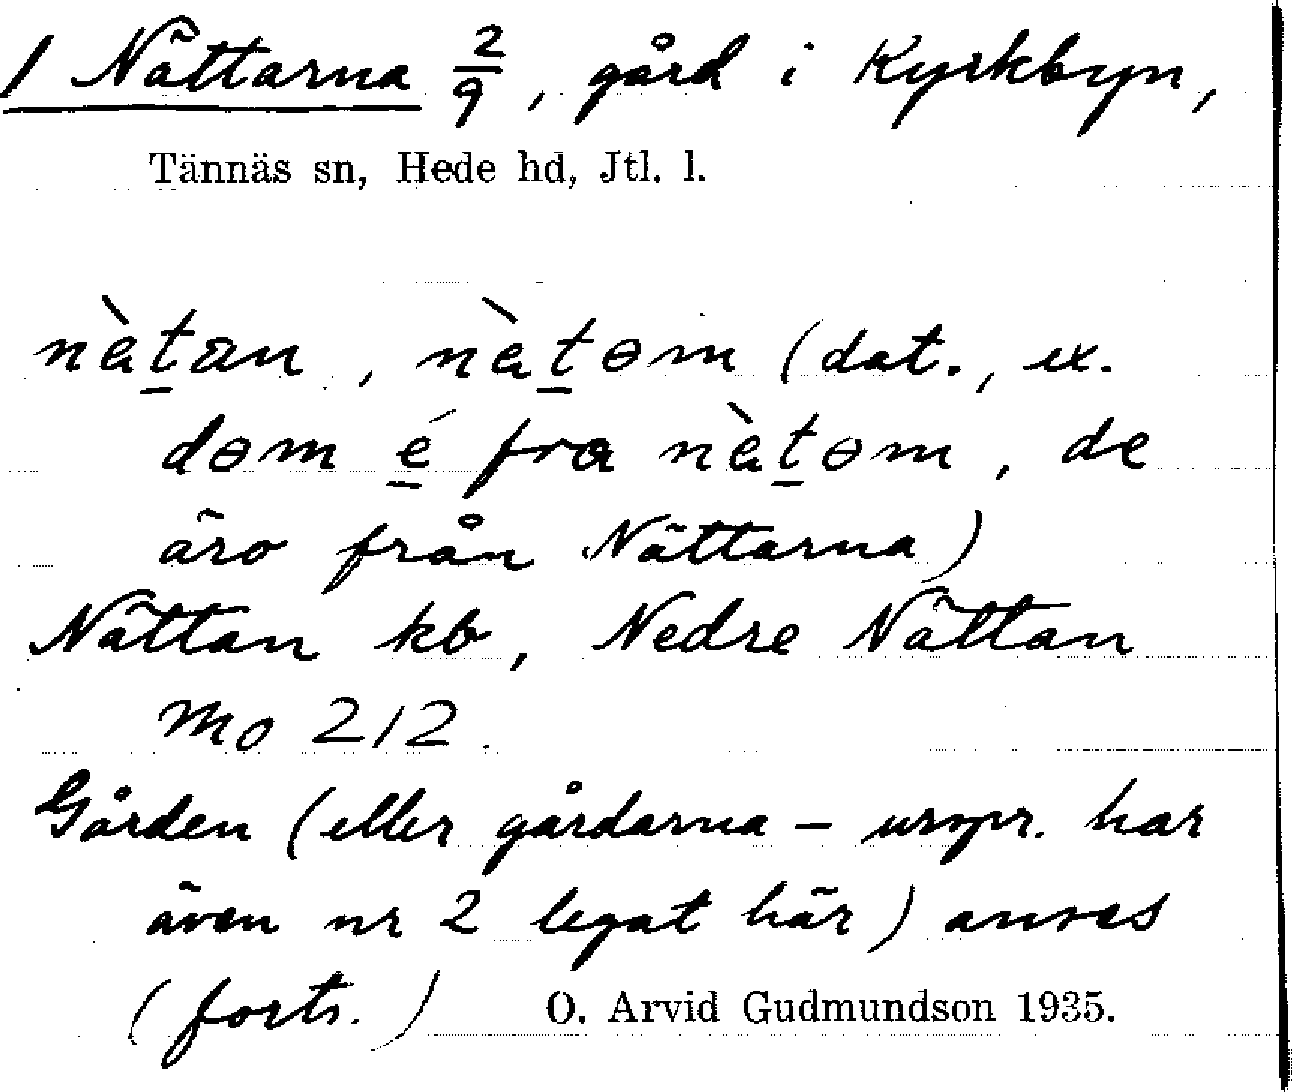 1 Nättarna 2/9, gård i Kyrkbyn,
Tännäs sn, Hede hd, Jtl. l.
nèt̲an, nèt̲ɵm (dat., ex.
dɵm é̲ fra nèt̲ɵm, de
äro från Nättarna)
Nättan kb, Nedre Nättan
Mo 212.
Gården (eller gårdarna – urspr. har
även nr 2 legat här) anses
(forts.) O. Arvid Gudmundson 1935.